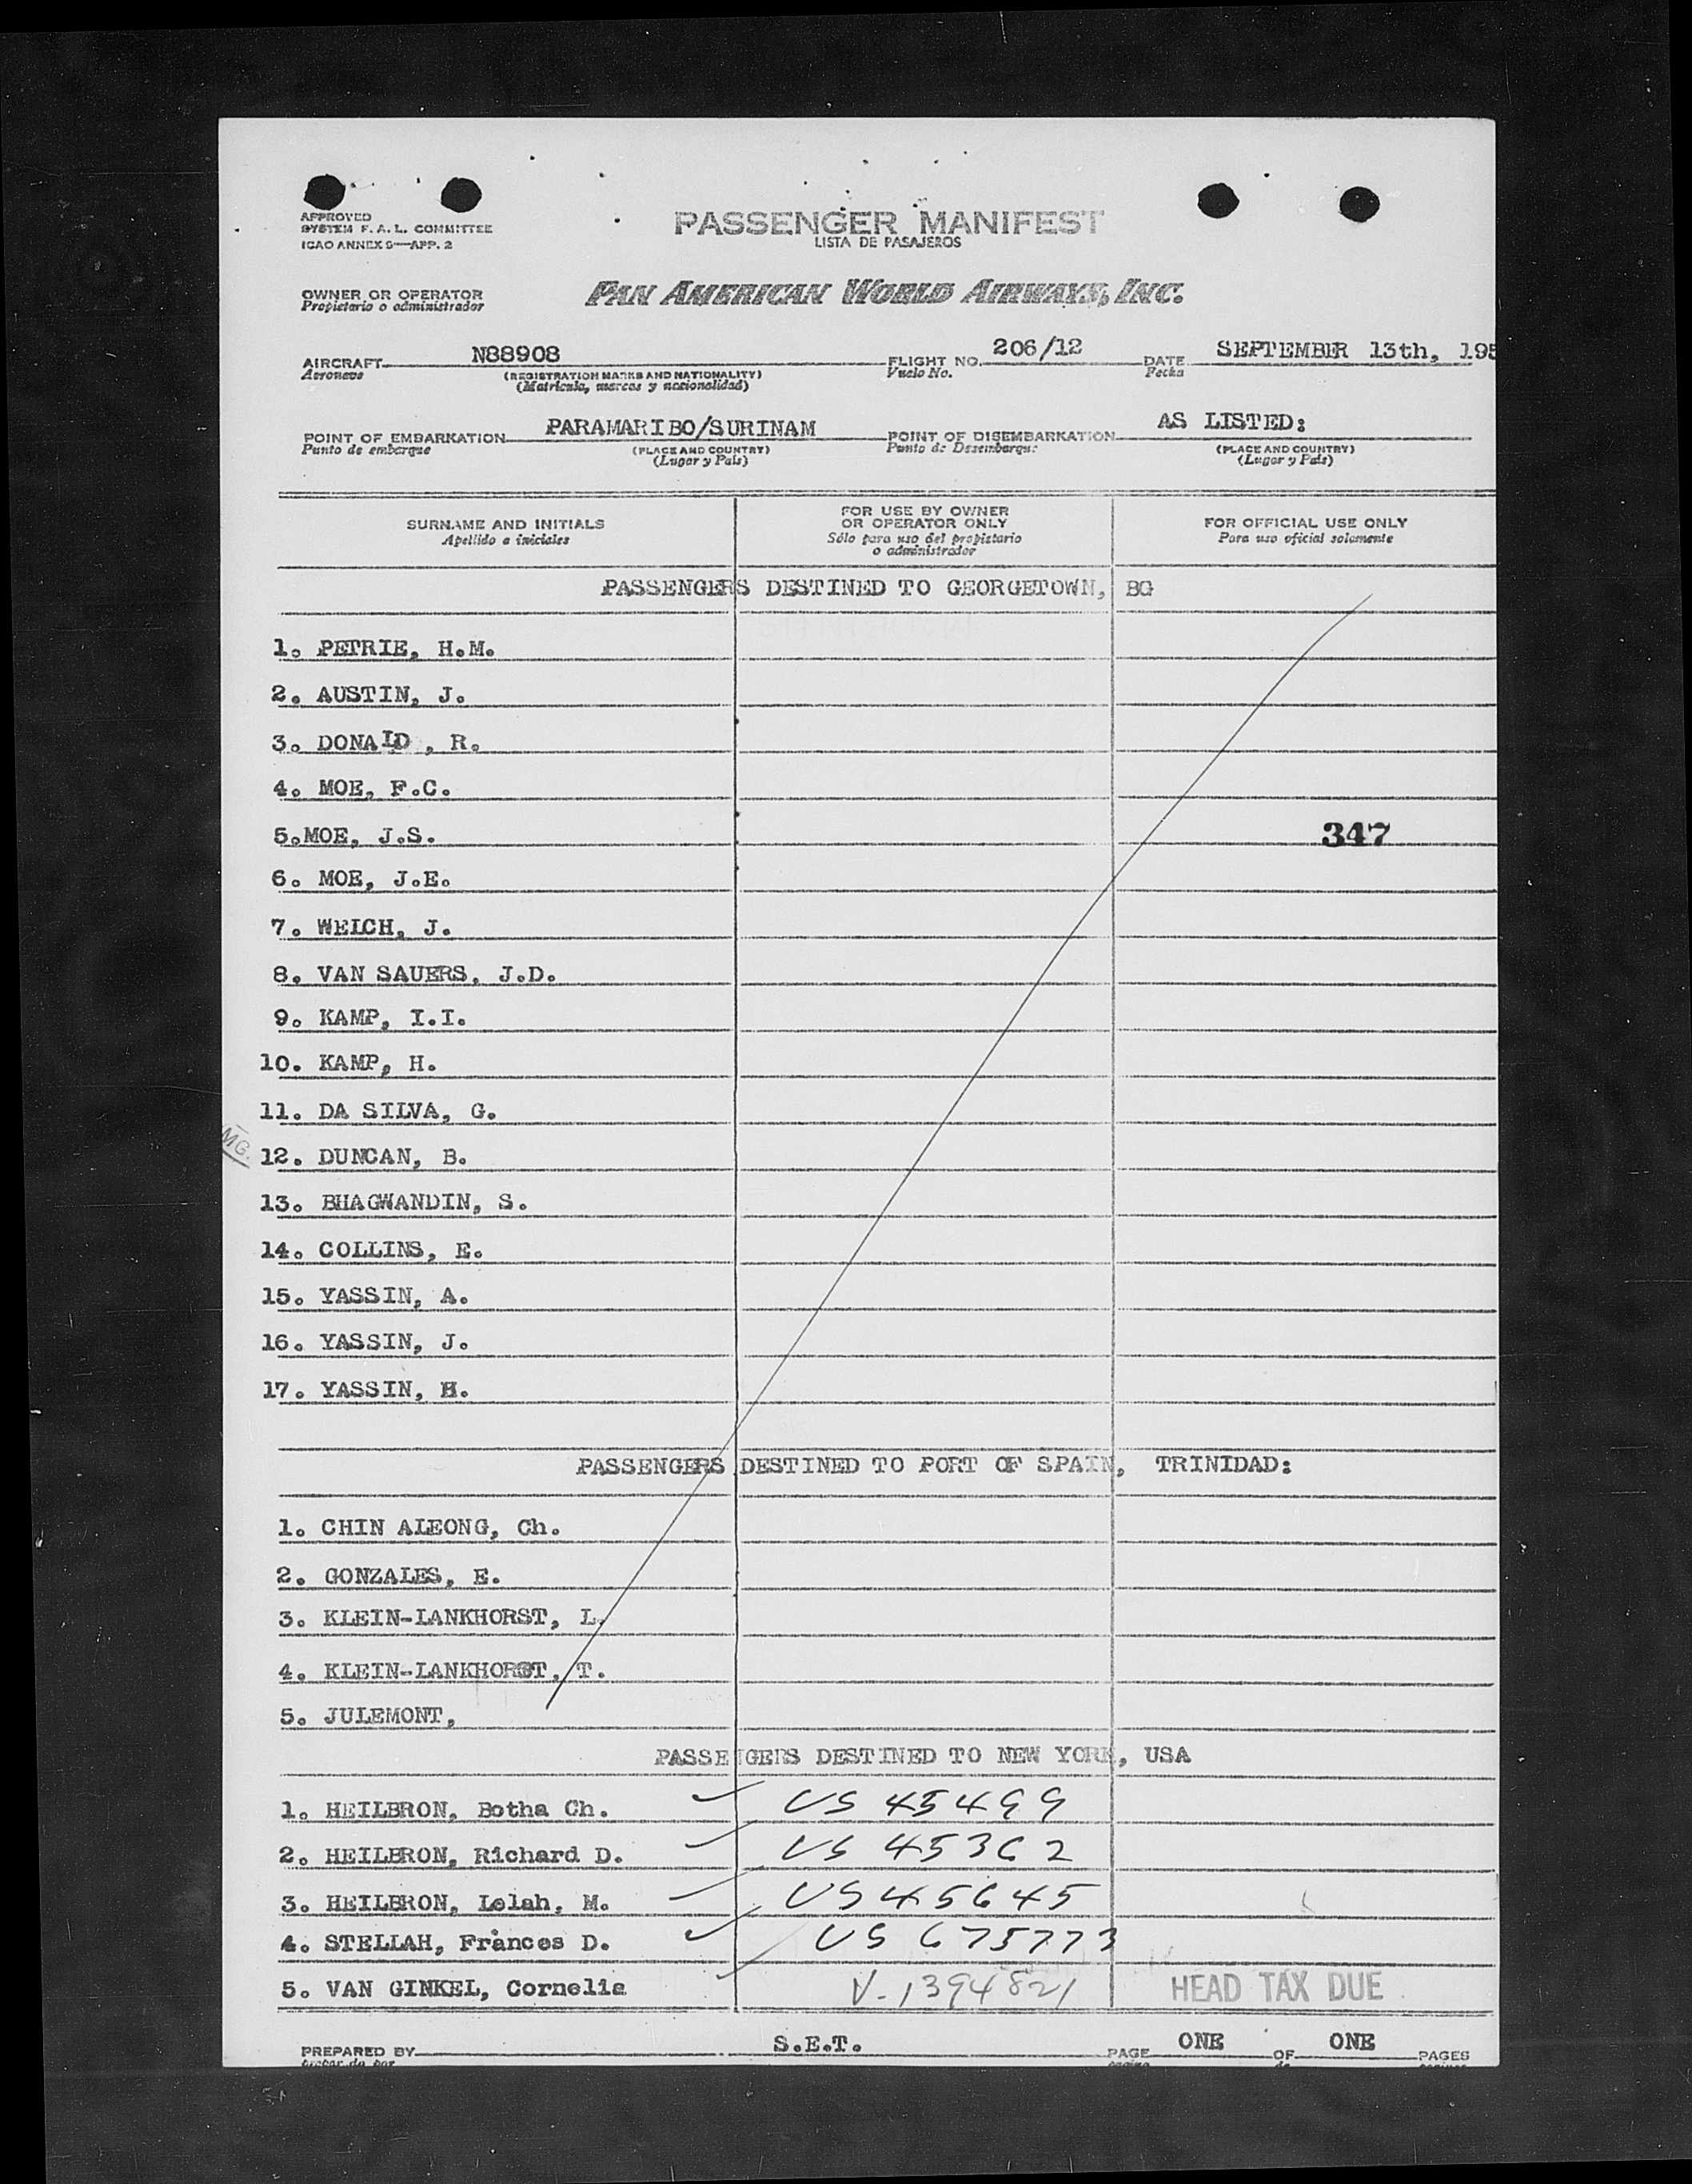 APPROVED
SYSTEM F. A. L. COMMITTEE
ICAO ANNEX 9—APP. 2
PASSENGER MANIFEST
LISTA DE PASAJEROS
OWNER OR OPERATOR
Propietario o administrador
PAN AMERICAN WORLD AIRWAYS, INC.
AIRCRAFT N88908 FLIGHT NO. 206/12 DATE SEPTEMBER 13th, 195
Aeronave (REGISTRATION MARKS AND NATIONALITY) Vuelo No. Fecha
(Matricula, marcas y nacionalidad)
POINT OF EMBARKATION PARAMARIBO/SURINAM POINT OF DISEMBARKATION AS LISTED:
Punto de embarque (PLACE AND COUNTRY) Punto de Desembarque (PLACE AND COUNTRY)
(Lugar y País) (Lugar y País)
SURNAME AND INITIALS
Apellido e iniciales
FOR USE BY OWNER
OR OPERATOR ONLY
Sólo para uso del propietario
o administrador
FOR OFFICIAL USE ONLY
Para uso oficial solamente
PASSENGERS DESTINED TO GEORGETOWN, BG
1. PETRIE, H.M.
2. AUSTIN, J.
3. DONALD , R.
4. MOE, F.C.
5.MOE, J.S. 347
6. MOE, J.E.
7. WELCH, J.
8. VAN SAUERS, J.D.
9. KAMP, I.I.
10. KAMP, H.
11. DA SILVA, G.
MG.
12. DUNCAN, B.
13. BHAGWANDIN, S.
14. COLLINS, E.
15. YASSIN, A.
16. YASSIN, J.
17. YASSIN, H.
PASSENGERS DESTINED TO PORT OF SPAIN, TRINIDAD:
1. CHIN ALEONG, Ch.
2. GONZALES, E.
3. KLEIN-LANKHORST, L.
4. KLEIN-LANKHORST, T.
5. JULEMONT,
PASSENGERS DESTINED TO NEW YORK, USA
1. HEILBRON, Botha Ch. ✓ US 45499
2. HEILBRON, Richard D. ✓ US 45362
3. HEILBRON, Lelah, M. ✓ US 45645
4. STELLAH, Frances D. ✓ US 675773
5. VAN GINKEL, Cornelia ✓ V-1394821 HEAD TAX DUE
PREPARED BY S.E.T. PAGE ONE OF ONE PAGES